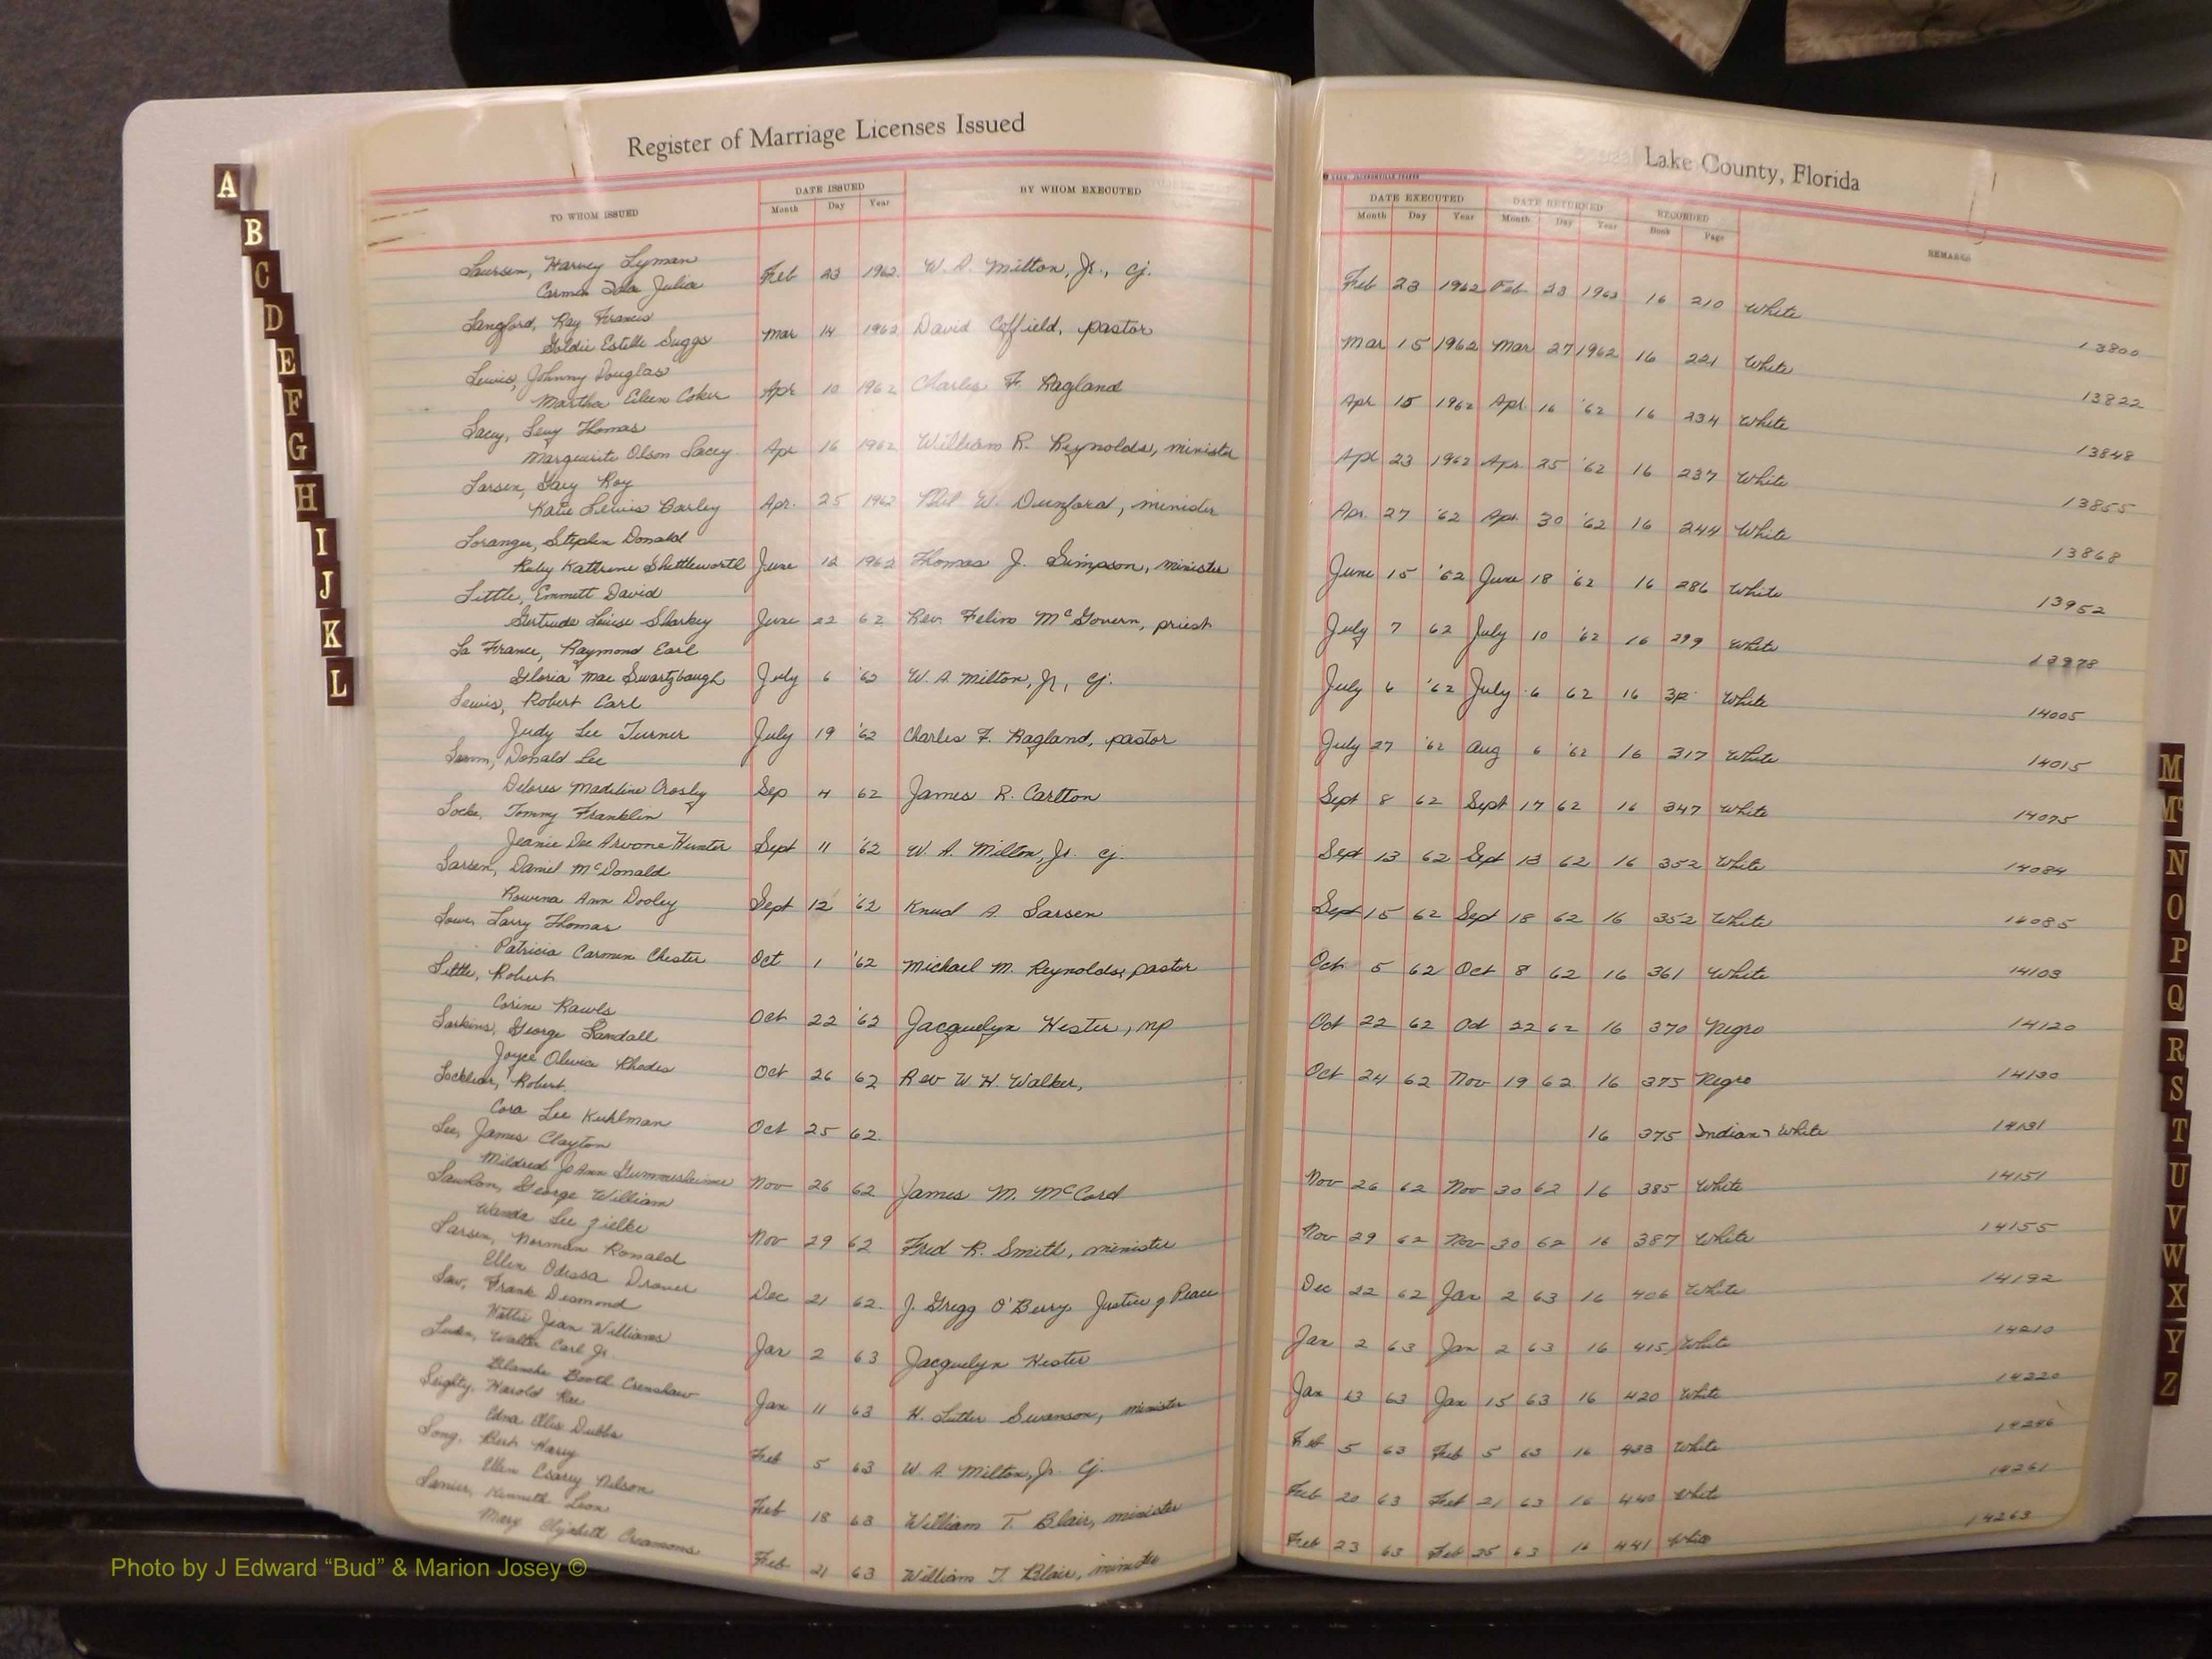 Register of Marriage Licenses Issued
Lake County, Florida
TO WHOM ISSUED DATE ISSUED BY WHOM EXECUTED
Month Day Year
DATE EXECUTED DATE RETURNED RECORDED REMARKS
Month Day Year Month Day Year Book Page
Laursen, Harvey Lyman
Carmen Julia Feb 23 1962 W. A. Milton, Jr., cj. Feb 23 1962 Feb 23 1962 16 210 White 13800
Langford, Ray Francis
Goldie Estelle Suggs Mar 14 1962 David Coffield, pastor Mar 15 1962 Mar 27 1962 16 221 White 13822
Lewis, Johnny Douglas
Martha Eileen Coker Apr 10 1962 Charles F. Ragland Apr 15 1962 Apr 16 '62 16 234 White 13848
Lacey, Thomas
Marguerite Olson Lacey Apr 16 1962 William R. Reynolds, minister Apr 23 1962 Apr. 25 '62 16 237 White 13855
Larsen, Gary Roy
Katie Lewis Barley Apr. 25 1962 W. Dunford, minister Apr. 27 '62 Apr 30 '62 16 244 White 13868
Loranger, Stephen Donald
Ruby Kathrine Shettleworth June 12 1962 Thomas J. Simpson, minister June 15 '62 June 18 '62 16 286 White 13952
Little, Emmett David
Gertrude Louise Sharkey June 22 62 Rev. Felim McGovern, priest July 7 62 July 10 '62 16 299 White 13978
La France, Raymond Earl
Gloria Mae Swartzbaugh July 6 '62 W. A Milton, Jr, cj. July 6 '62 July 6 62 16 White 14005
Lewis, Robert Carl
Judy Lee Turner July 19 '62 Charles F. Ragland, pastor July 27 '62 Aug 6 '62 16 317 White 14015
Donald Lee
Delores Madeline Crosby Sep 4 62 James R. Carlton Sept 8 62 Sept 17 62 16 347 White 14075
Locke, Tommy Franklin
Jeanie Dee Arvone Hunter Sept 11 '62 W. A. Milton, Jr. cj. Sept 13 62 Sept 13 62 16 352 White 14084
Larsen, Daniel McDonald
Rowena Ann Dooley Sept 12 '62 Knud A. Larsen Sept 15 62 Sept 18 62 16 352 White 14085
Lowe, Larry Thomas
Patricia Carmen Chester Oct 1 '62 Michael M. Reynolds, pastor Oct 5 62 Oct 8 62 16 361 White 14103
Little, Robert
Corine Rawls Oct 22 '62 Jacquelyn Hester, np Oct 22 62 Oct 22 62 16 370 Negro 14120
Larkins, George Randall
Joyce Olivia Rhodes Oct 26 62 Rev W H. Walker, Oct 24 62 Nov 19 62 16 375 Negro 14130
Locklear, Robert
Cora Lee Kuhlman Oct 25 62 16 375 Indian White 14131
Lee, James Clayton
Mildred JoAnn Nov 26 62 James M. McCord Nov 26 62 Nov 30 62 16 385 White 14151
Lawhon, George William
Wanda Lee Zielke Nov 29 62 Fred R. Smith, minister Nov 29 62 Nov 30 62 16 387 White 14155
Larsen, Norman Ronald
Ellen Odessa Drawer Dec 21 62. J. Gregg O'Berry, Justice of Peace Dec 22 62 Jan 2 63 16 406 White 14192
Law, Frank Desmond
Hattie Jean Williams Jan 2 63 Jacquelyn Hester Jan 2 63 Jan 2 63 16 415 White 14210
Walter Carl Jr.
Blanche Booth Crenshaw Jan 11 63 H. Luther Swanson, minister Jan 13 63 Jan 15 63 16 420 White 14220
Leighty, Harold Rae
Edna Ellis Dubbs Feb 5 63 W. A. Milton, Jr. cj. Feb 5 63 Feb 5 63 16 433 White 14246
Long, Bert Harry
Ellen Esarey Nelson Feb 18 63 William T. Blair, minister Feb 20 63 Feb 21 63 16 440 White 14261
Lanier, Kenneth Leon
Mary Elizabeth Feb 21 63 William T. Blair, minister Feb 23 63 Feb 25 63 16 441 White 14263
A
B
C
D
E
F
G
H
I
J
K
L
M
Mc
N
O
P
Q
R
S
T
U
V
W
X
Y
Z
Photo by J Edward “Bud” & Marion Josey ©